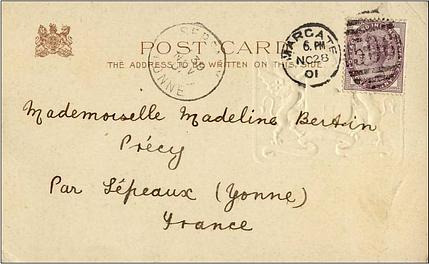 POST CARD
THE ADDRESS TO BE WRITTEN ON THIS SIDE.
MARGATE
6. PM
NO 28
01
Mademoiselle Madeline Bertin
Précy
Par Sépeaux (Yonne)
France